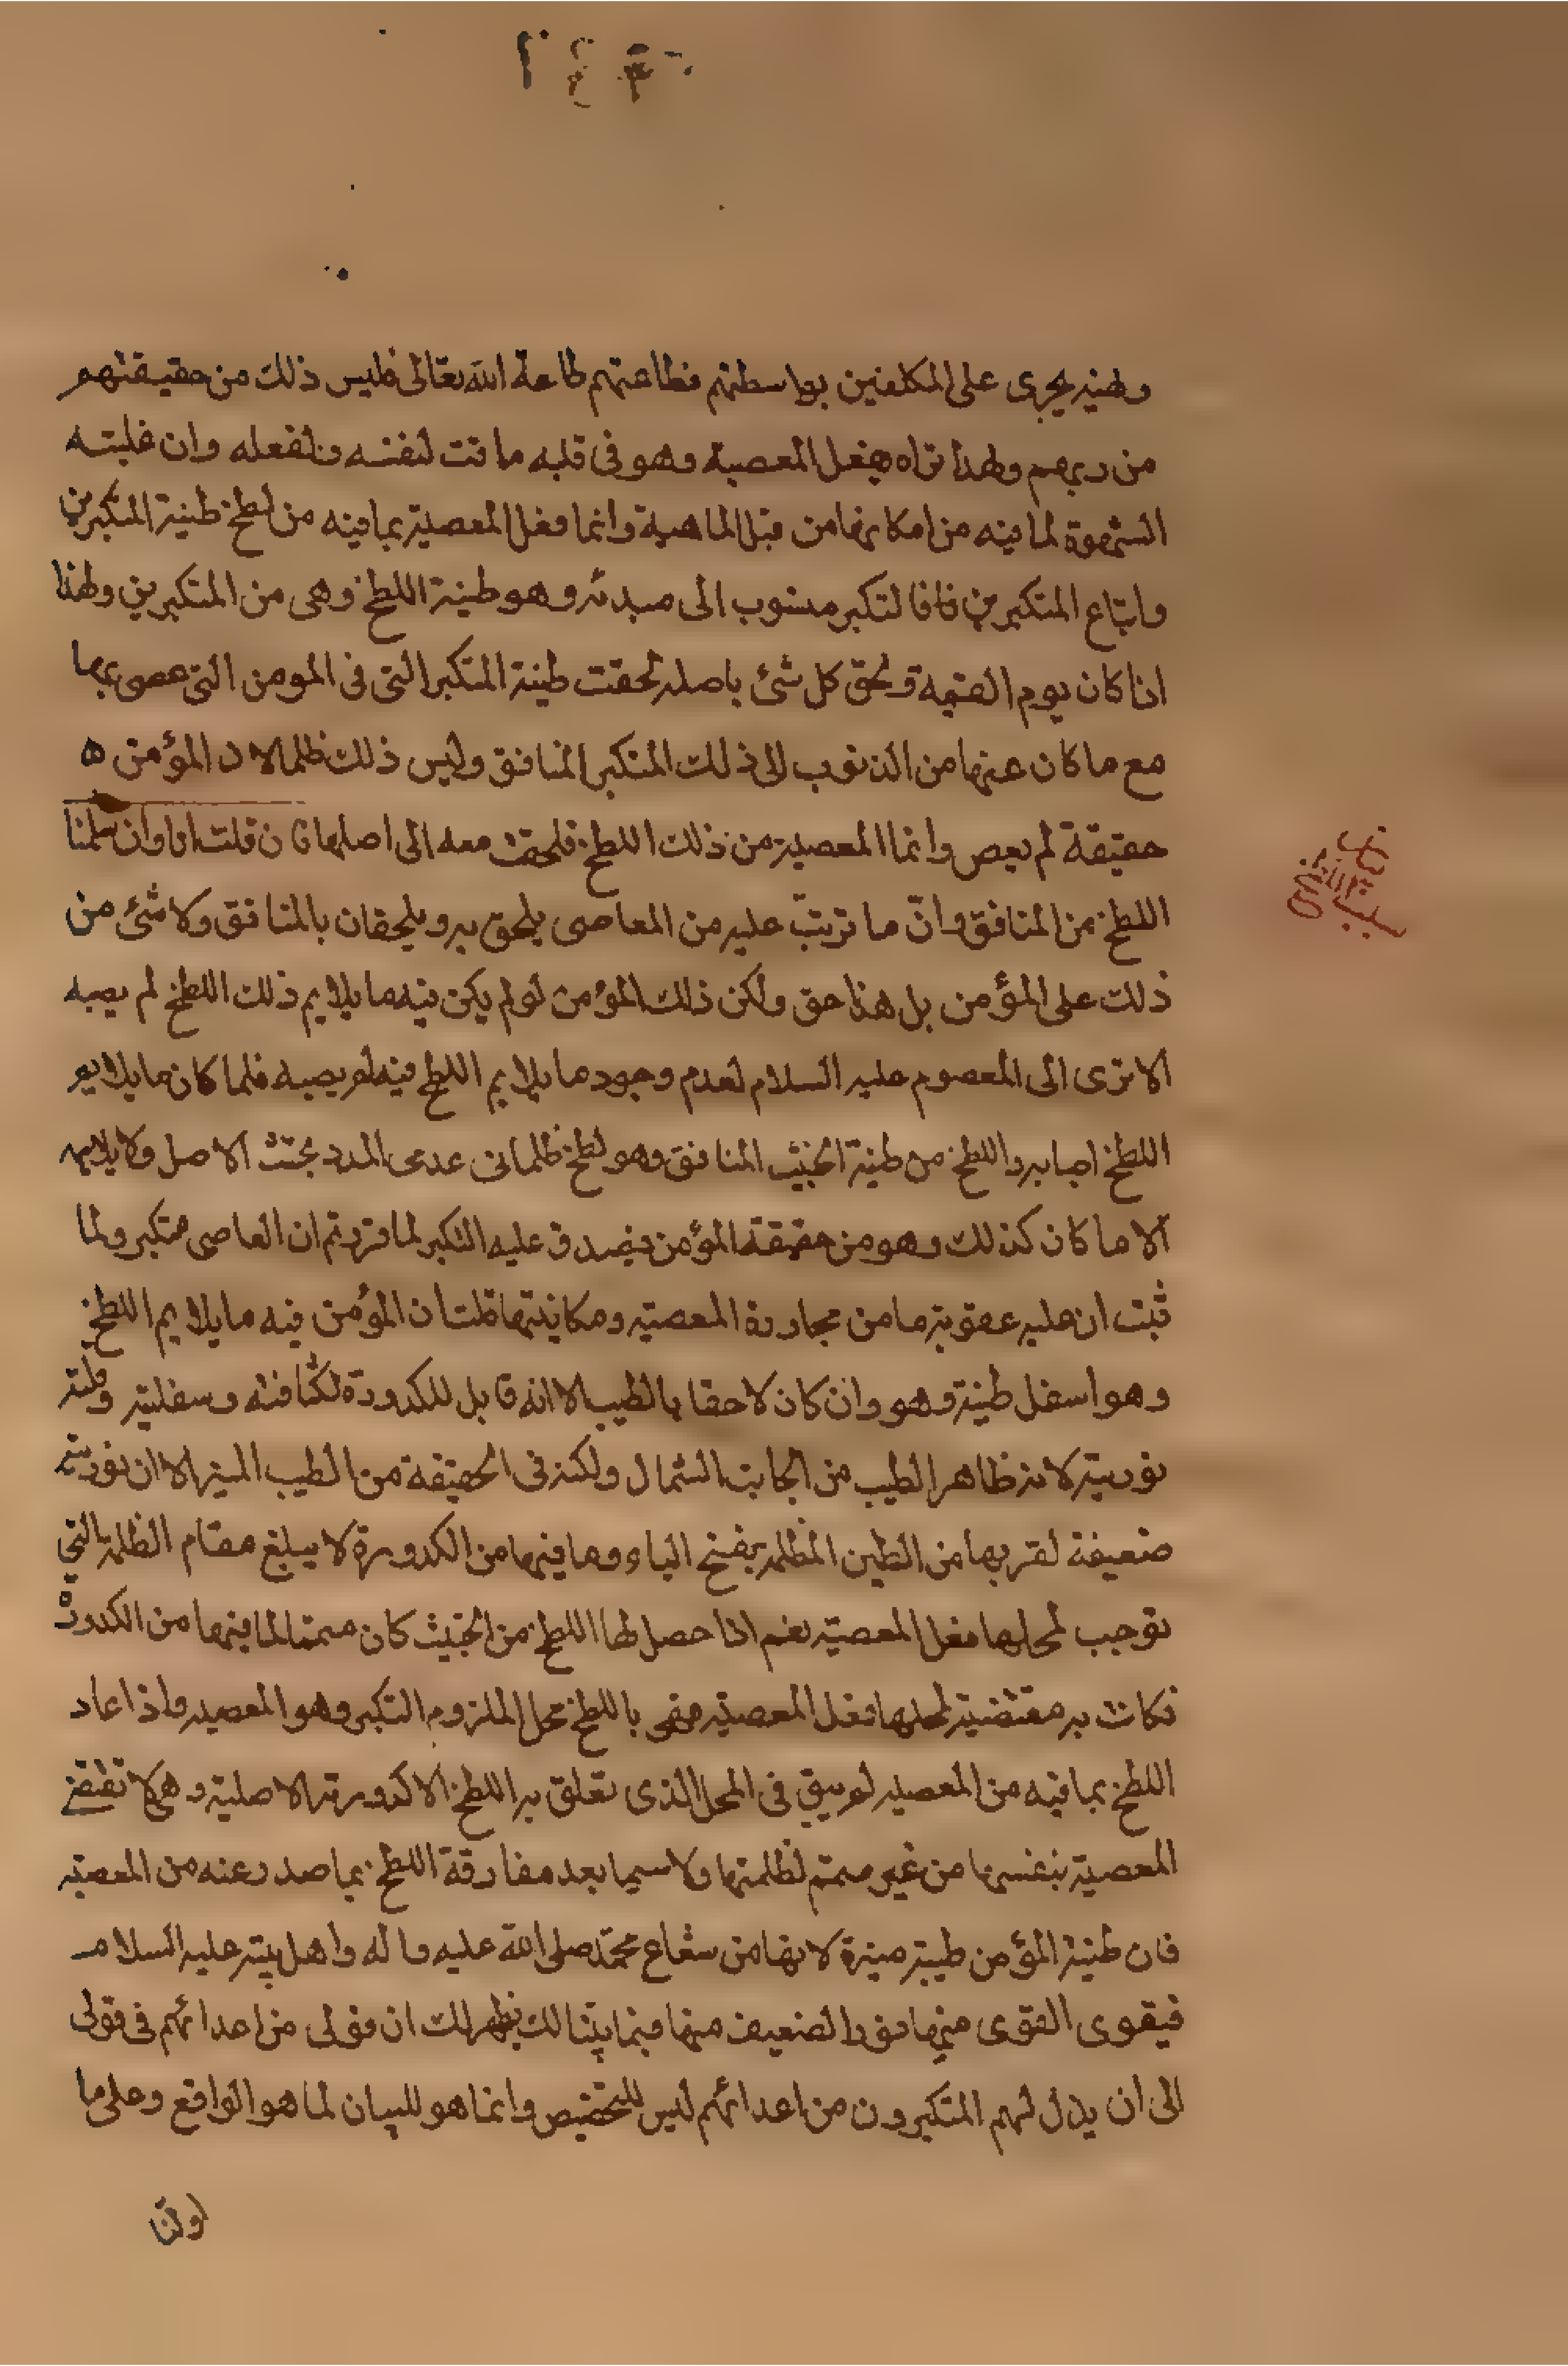 ولهذا يجرى على المكلفين بواسطتهم فطاعتهم طاعة الله تعالى فليس ذلك من حقيقتهم
من ربهم ولهذا تراه يفعل المعصية وهو فى قلبه ماقت لنفسه ولفعله وان غلبته
الشهوة لما فيه من امكانها من قبل الماهية وانما فعل المعصية بما فيه من لطخ طينة المتكبرين
واتباع المتكبرين فاذا التكبر منسوب الى مبدئه وهو طينة اللطخ وهى من المتكبرين ولهذا
اذا كان يوم القيمة ولحق كل شئ باصله لحقت طينة المتكبر التى فى المومن التى عصى بها
مع ما كان عنها من الذنوب الى ذلك المتكبر المنافق وليس ذلك ظلما لان المؤمن ه
حقيقة لم يعص وانما المعصية من ذلك اللطخ فلحقت معه الى اصلها فان قلت انا وان سلمنا
اللطخ من المنافق وانّ ما ترتبّ عليه من المعاصى يلحق به ويلحقان بالمنافق ولا شئ من
ذلك على المؤمن بل هذا حق ولكن ذلك المؤمن لو لم يكن فيه ما يلايم ذلك اللطخ لم يصبه
الا ترى الى المعصوم عليه السلام لعدم وجود ما يلايم اللطخ فيه لم يصبه فلما كان ما يلايم
اللطخ اصابه واللطخ من طينة الخبيث المنافق وهو لطخ ظلمانى عدمى المدد مجتث الاصل ولا يلايمه
الا ما كان كذلك وهو من حقيقة المؤمن فيصدق عليه التكبر لما قررتم ان العاصى متكبر ولما
ثبت ان عليه عقوبة ما من مجاورة المعصية ومكانيتها قلت ان المؤمن فيه ما يلايم اللطخ
وهو اسفل طينة وهو وان كان لاحقا بالطيب الا انه قابل للكدورة لكثافته وسفليته وقلته
نوريته لانه ظاهر الطيب من الجانب الشمال ولكنه فى الحقيقة من الطيب المنير الا ان نوريته
ضعيفة لقربها من الطين المظلمه بفتح الباء وما فيها من الكدورة لا يبلغ مقام الظلمة التى
توجب لمحلها فعل المعصية نعم اذا حصل لها اللطخ من الخبيث كان متمما لما فيها من الكدورة
فكانت به مقتضية لمحلها فعل المعصية فهى باللطخ محل الملزوم التكبر وهو المعصية واذا عاد
اللطخ بما فيه من المعصية لم يبق فى المحل الذى تعلق به اللطخ الا كدورته الاصلية وهى لا تقتضى
المعصية بنفسها من غير متمم لظلمتها ولا سيما بعد مفارقة اللطخ بما صدر عنه من المعصية
فان طينة المؤمن طيبة منيرة لانها من شعاع محمّد صلى الله عليه واله واهل بيته عليه السلام
فيقوى القوى منها نور الضعيف منها فبما بيّنا لك يظهر لك ان قولى من اعدائهم فى قولى
الى ان يدل لهم المتكبرون من اعدائهم ليس للتخصيص وانما هو للبيان لما هو الواقع وعلى ما